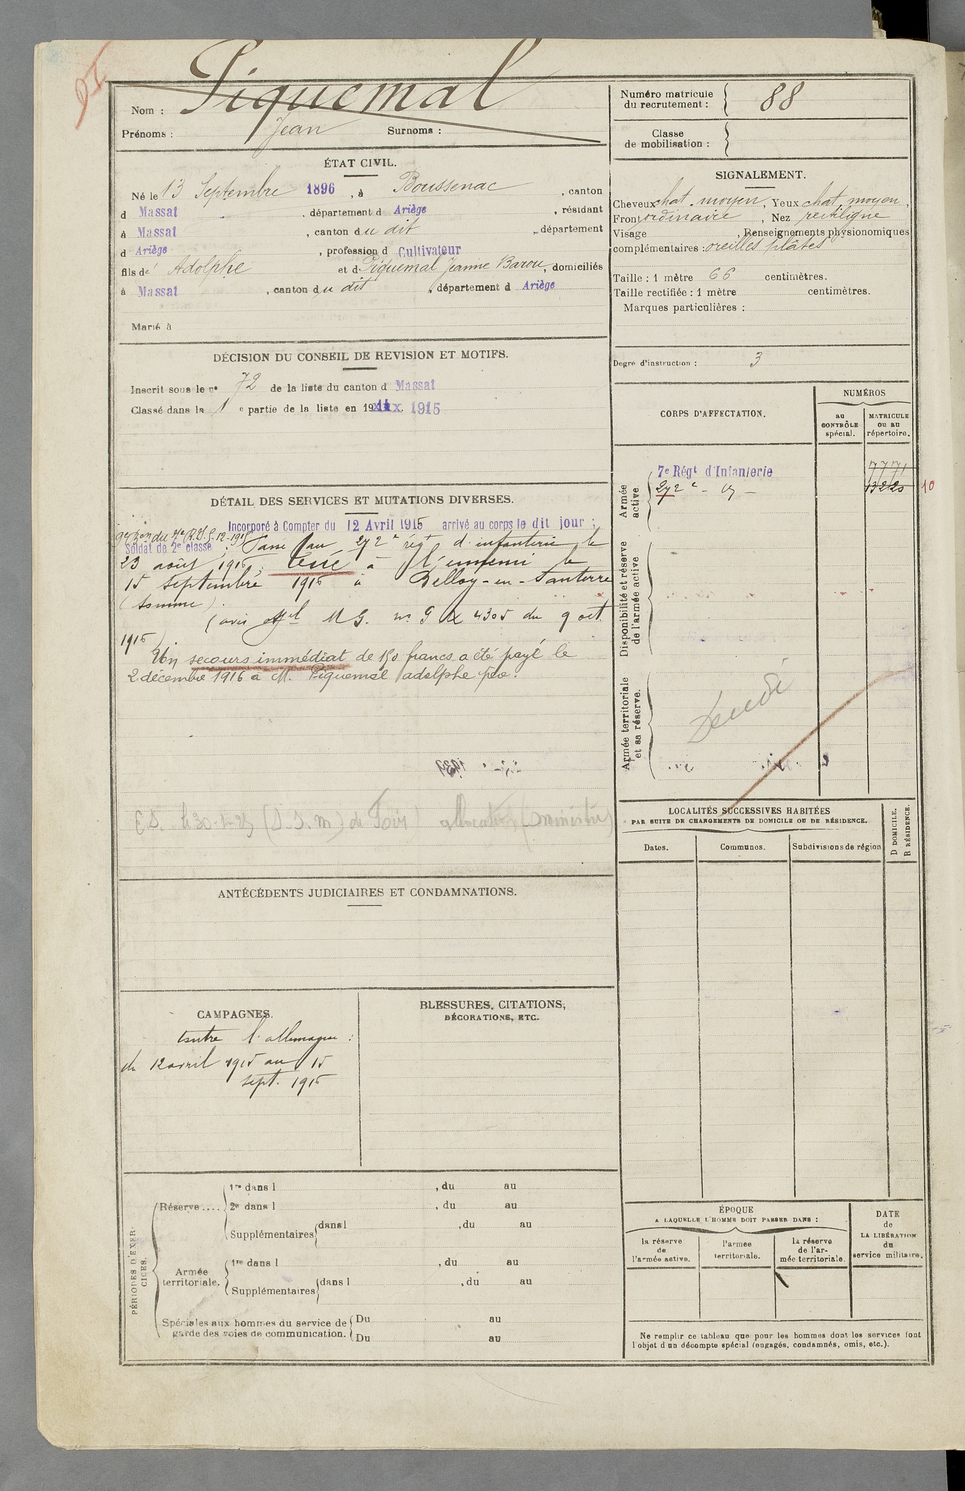 Nom : Piquemal
Prénoms : Jean Surnoms :
Numéro matricule du recrutement : 88
Classe de mobilisation :
ÉTAT CIVIL.
Né le 13 Septembre 1896, à Boussenac, canton
d Massat, département d Ariège, résidant
à Massat, canton du dit, département
d Ariège, profession d Cultivateur
fils de Adolphe et de Piquemal Jeanne Barou, domiciliés
à Massat, canton du dit, département d Ariège
Marié à
SIGNALEMENT.
Cheveux chat. moyen, Yeux chat. moyen,
Front ordinaire, Nez rectiligne
Visage , Renseignements physionomiques
complémentaires : oreilles
Taille : 1 mètre 66 centimètres.
Taille rectifiée : 1 mètre centimètres.
Marques particulières :
Degré d'instruction : 3
DÉCISION DU CONSEIL DE REVISION ET MOTIFS.
Inscrit sous le n° 72 de la liste du canton d Massat
Classé dans la 1 e partie de la liste en 19 1915
DÉTAIL DES SERVICES ET MUTATIONS DIVERSES.
Incorporé à Compter du 12 Avril 1915 arrivé au corps le dit jour ;
Soldat de 2e classe ; Passé au 272e rég t d'infanterie le
23 août 1916, tué à l'ennemi le
15 septembre 1916 à Belloy-en-Santerre
(Somme).
(avis off el M G. n° 4305 du 9 oct.
1916)
Un secours immédiat de 150 francs a été payé le
2 décembre 1916 à M. Piquemal adolphe père.
CORPS D'AFFECTATION.
NUMÉROS
AU CONTRÔLE spécial.
MATRICULE OU AU répertoire.
Armée active
7e Régt d'Infanterie 7771
272e - d° -
10
Disponibilité et réserve de l'armée active
Armée territoriale et sa réserve.
LOCALITÉS SUCCESSIVES HABITÉES
PAR SUITE DE CHANGEMENTS DE DOMICILE OU DE RÉSIDENCE.
Dates.
Communes.
Subdivisions de région
D DOMICILE.
R RÉSIDENCE.
ANTÉCÉDENTS JUDICIAIRES ET CONDAMNATIONS.
CAMPAGNES.
Contre l'allemagne :
du 12 avril 1915 au 15
sept. 1916
BLESSURES, CITATIONS,
DÉCORATIONS, ETC.
PÉRIODES D'EXERCICES.
Réserve .... 1re dans l , du au
2e dans l , du au
Supplémentaires dans l , du au
Armée territoriale. 1re dans l , du au
Supplémentaires dans l , du au
Spéciales aux hommes du service de garde des voies de communication. Du au
Du au
ÉPOQUE
A LAQUELLE L'HOMME DOIT PASSER DANS :
la réserve de l'armée active.
l'armée territoriale.
la réserve de l'armée territoriale.
DATE de LA LIBÉRATION du service militaire.
Ne remplir ce tableau que pour les hommes dont les services font
l'objet d'un décompte spécial (engagés, condamnés, omis, etc.).